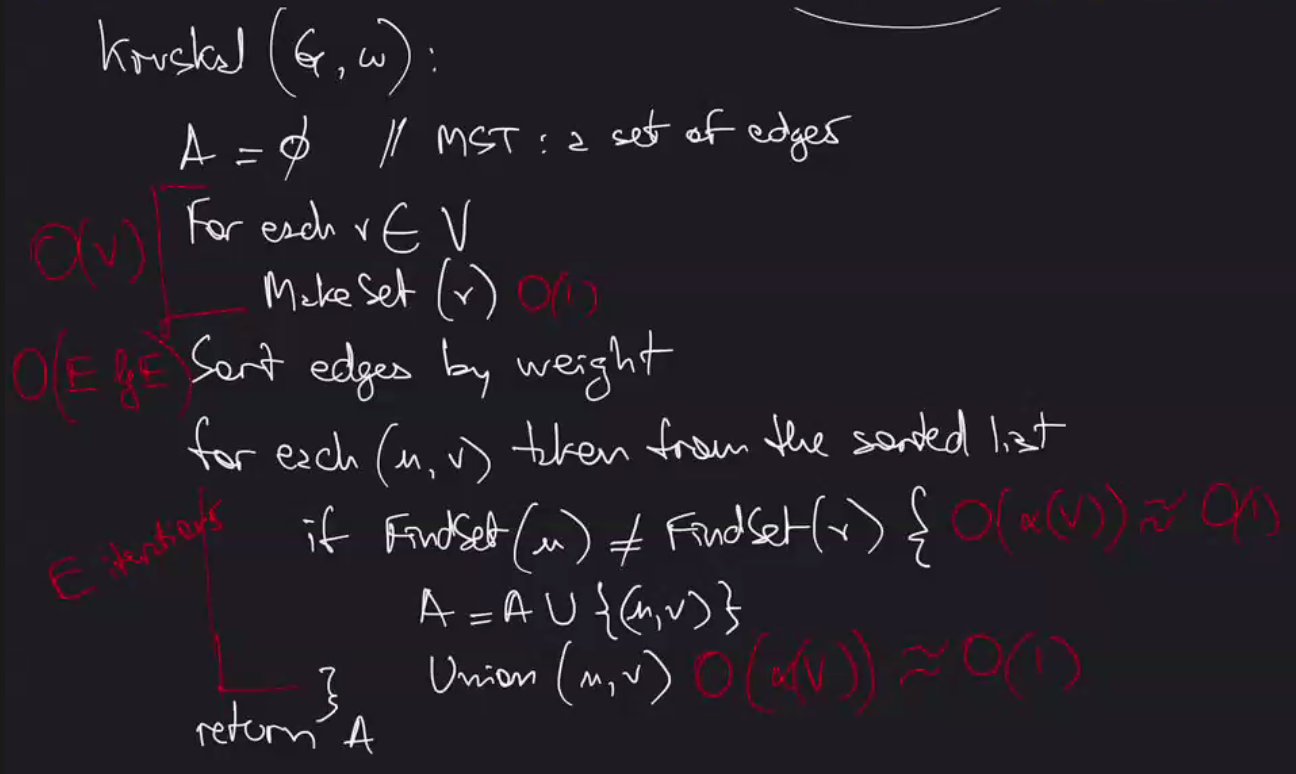 Kruskal (G, w):
A = ∅ // MST: a set of edges
O(V) For each v ∈ V
MakeSet (v) O(1)
O(E lg E) Sort edges by weight
for each (u, v) taken from the sorted list
E iterations if FindSet(u) ≠ FindSet(v) { O(α(V)) ≈ O(1)
A = A ∪ {(u,v)}
Union (u,v) O(α(V)) ≈ O(1)
}
return A